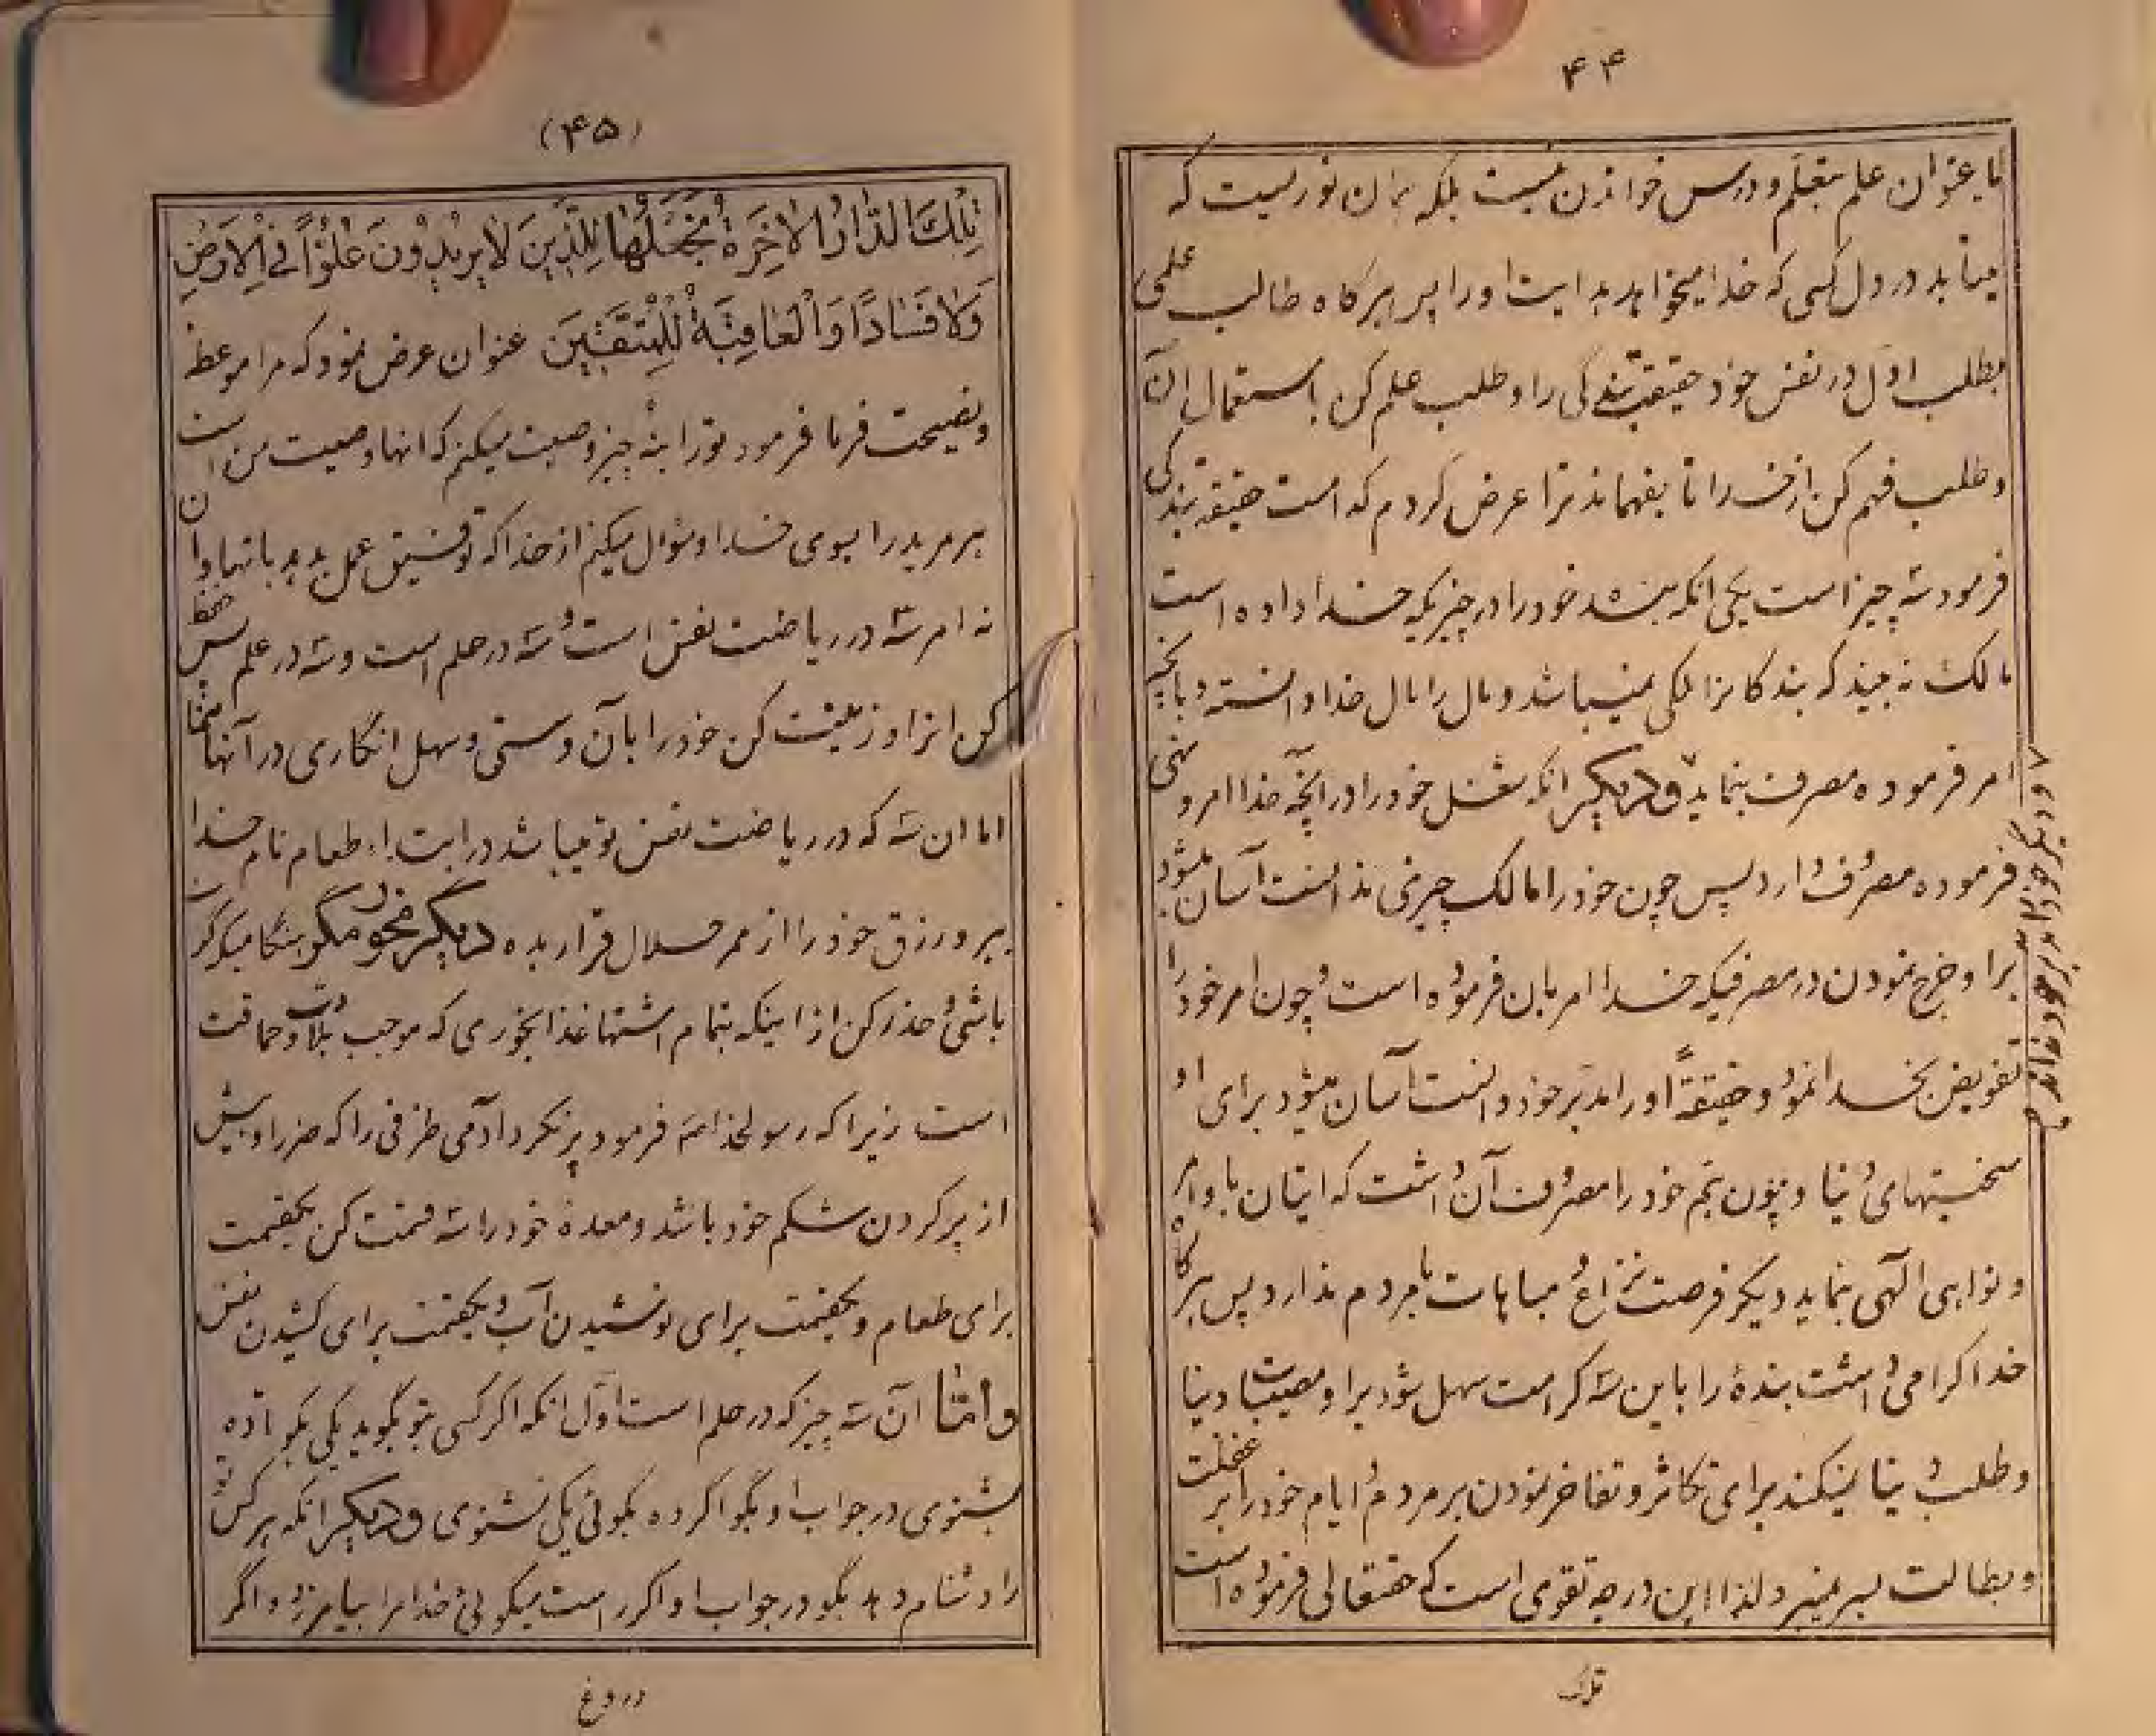 ۴۴
یا عنوان علم بتعلم و درس خواندن نیست بلکه بدان نوریست که
میتابد در دل کسی که خدا میخواهد هدایت او را پس هرگاه طالب علمی
بطلب اول در نفس خود حقیقت بندگی را و طلب علم کن باستعمال آن
و طلب فهم کن از خدا تا بفهماند ترا عرض کردم که چیست حقیقة بندگی
فرمود سه چیز است یکی انکه بنده خود را در چیزیکه خدا داده است
مالک نه بیند که بندگانرا ملکی نمیباشد و مال را مال خدا دانسته و بانچه
امر فرموده مصرف بنماید و دیگر انکه شغل خود را در آنچه خدا امر و نهی
فرموده مصرف دارد پس چون خود را مالک چیزی ندانست آسان میشود
برا و خرج نمودن در مصرفیکه خدا امر بان فرموده است و چون امر خود را
تفویض بخدا نمود و حقیقةً او را مدبر خود دانست آسان میشود برای او
سختیهای دنیا و چون خود را مصروف آن داشت که اتیان باوامر
و نواهی الهی بنماید دیگر فرصت نزاع و مباهات با مردم ندارد پس هرگاه
خدا گرامی داشت بندهٔ را باین سه کرامت سهل شود برا و مصیبت دنیا
و طلب دنیا نمیکند برای تکاثر و تفاخر نمودن بر مردم و ایام خود را بر غفلت
و بطالت بسر نمیبرد لهذا این درجه تقوی است که حقتعالی فرموده است
و دیگر خود را مدبر خود نداند
تلک
(۴۵)
تِلْكَ الدّٰارُ الْاٰخِرَةُ نَجْعَلُهٰا لِلَّذينَ لاٰ يُريدُونَ عُلُوّاً فِي الْاَرْضِ
وَلاٰ فَسٰادًا وَالْعٰاقِبَةُ لِلْمُتَّقينَ عنوان عرض نمود که مرا موعظه
و نصیحت فرما فرمود تو را بنه چیز وصیت میکنم که انها وصیت من است
هر مرید را بسوی خدا و سؤال میکنم از خدا که توفیق عمل بدهد بانها و ان
نه امر سه در ریاضت نفس است و سه در حلم است و سه در علم پس حفظ
کن انرا و زینت کن خود را بآن و سستی و سهل انگاری در آنها منما
اما ان سه که در ریاضت نفس تو میباشد در ابتداء طعام نام خدا
ببر و رزق خود را از ممر حلال قرار بده دیگر مخور مگر هنگامیکه گرسنه
باشی و حذر کن از اینکه بتمام اشتها غذا بخوری که موجب بلادت و حماقت
است زیرا که رسولخدا ص فرمود پر نکرد آدمی ظرفی را که ضرر او بیش
از پر کردن شکم خود باشد و معدهٔ خود را سه قسمت کن یکقسمت
برای طعام و یکقسمت برای نوشیدن آب و یکقسمت برای کشیدن نفس
و امّا آن سه چیز که در حلم است اوّل انکه اگر کسی بتو بگوید یکی بگو تا ده
بشنوی در جواب او بگو اگر ده بگوئی یکی نشنوی و دیگر انکه هر کس تو
را دشنام دهد بگو در جواب او اگر راست میگوئی خدا مرا بیامرزد و اگر
دروغ